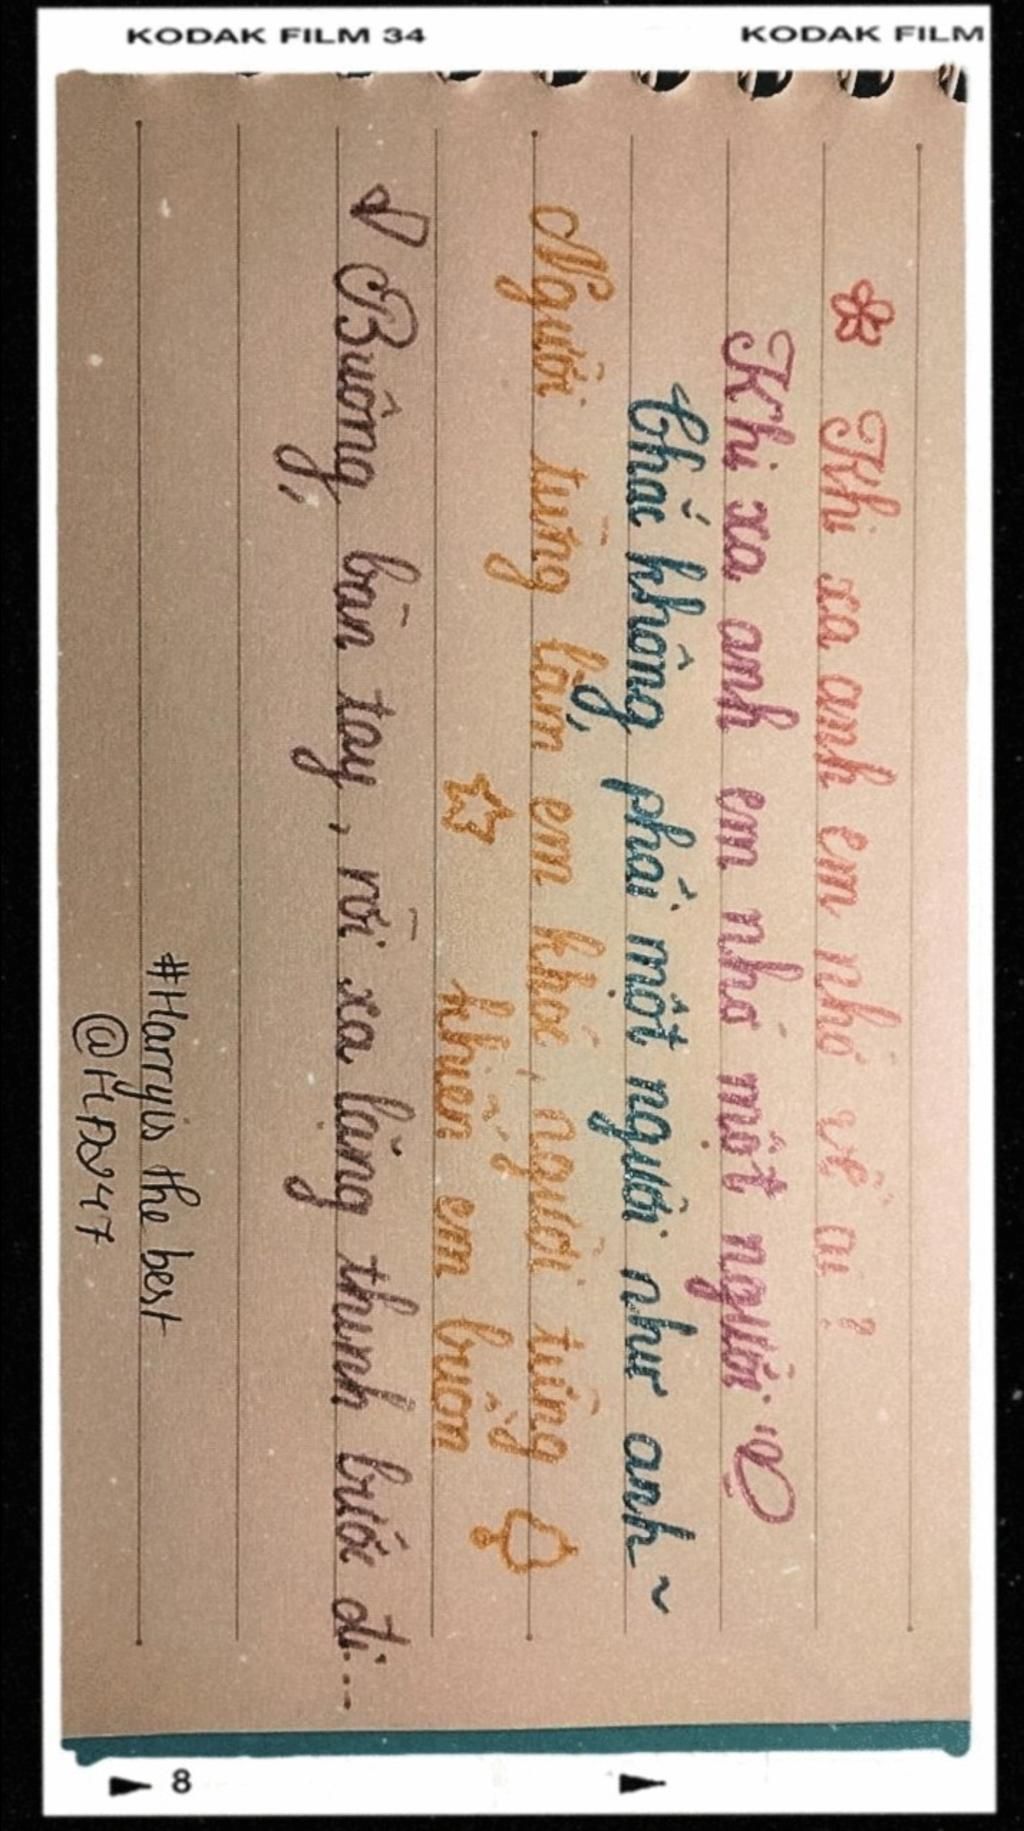 KODAK FILM 34
KODAK FILM
Khi xa anh em nhớ về ai?
Khi xa anh em nhớ một người
Chắc không phải một người như anh~
Người từng làm em khóc, người từng
khiến em buồn
Buông bàn tay, rồi xa lẳng thinh bước đi...
#Harry is the best
8